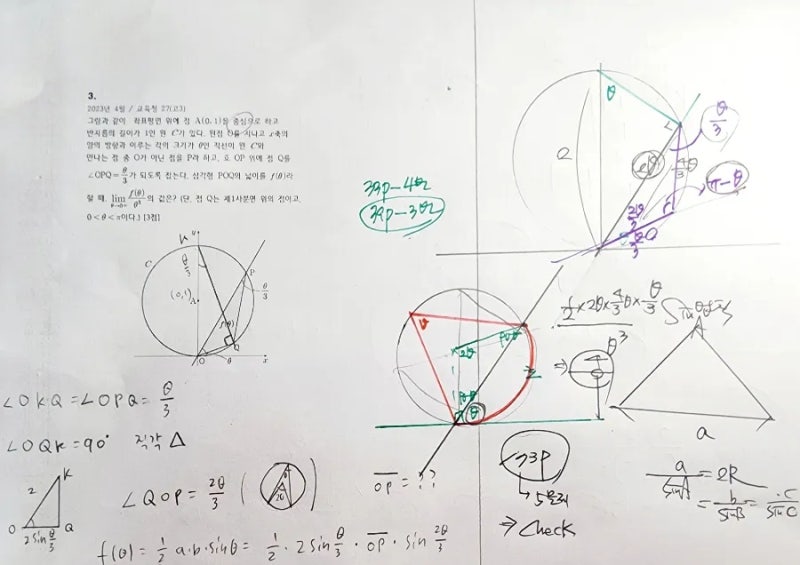 3.
2023년 4월 / 교육청 27(고3)
그림과 같이 좌표평면 위에 점 A(0, 1)을 중심으로 하고
반지름의 길이가 1인 원 C가 있다. 원점 O를 지나고 x축의
양의 방향과 이루는 각의 크기가 θ인 직선이 원 C와
만나는 점 중 O가 아닌 점을 P라 하고, 호 OP 위에 점 Q를
∠OPQ = θ/3 가 되도록 잡는다. 삼각형 POQ의 넓이를 f(θ)라
할 때, lim θ→0+ f(θ)/θ³ 의 값은? (단, 점 Q는 제1사분면 위의 점이고,
0 < θ < π이다.) [3점]
K
y
C
θ/3
P
θ/3
(0,1)
A
f(θ)
Q
O
θ
x
∠OKQ = ∠OPQ = θ/3
∠OQK = 90° 직각 △
K
2
O
Q
2sin θ/3
∠QOP = 2θ/3
f(θ) = 1/2 a·b·sinθ = 1/2 · 2sin θ/3 · OP · sin 2θ/3
θ
θ/3
2
2θ
4/3θ
π-θ
2θ/3
39p-4번
39p-3번
θ
2θ
2
θ
OP = ??
1/2 × 2θ × 4/3θ × θ/3
⇒
θ³
93P
→ 5문제
⇒ Check
A
a
a/sinA = 2R
= b/sinB = C/sinC